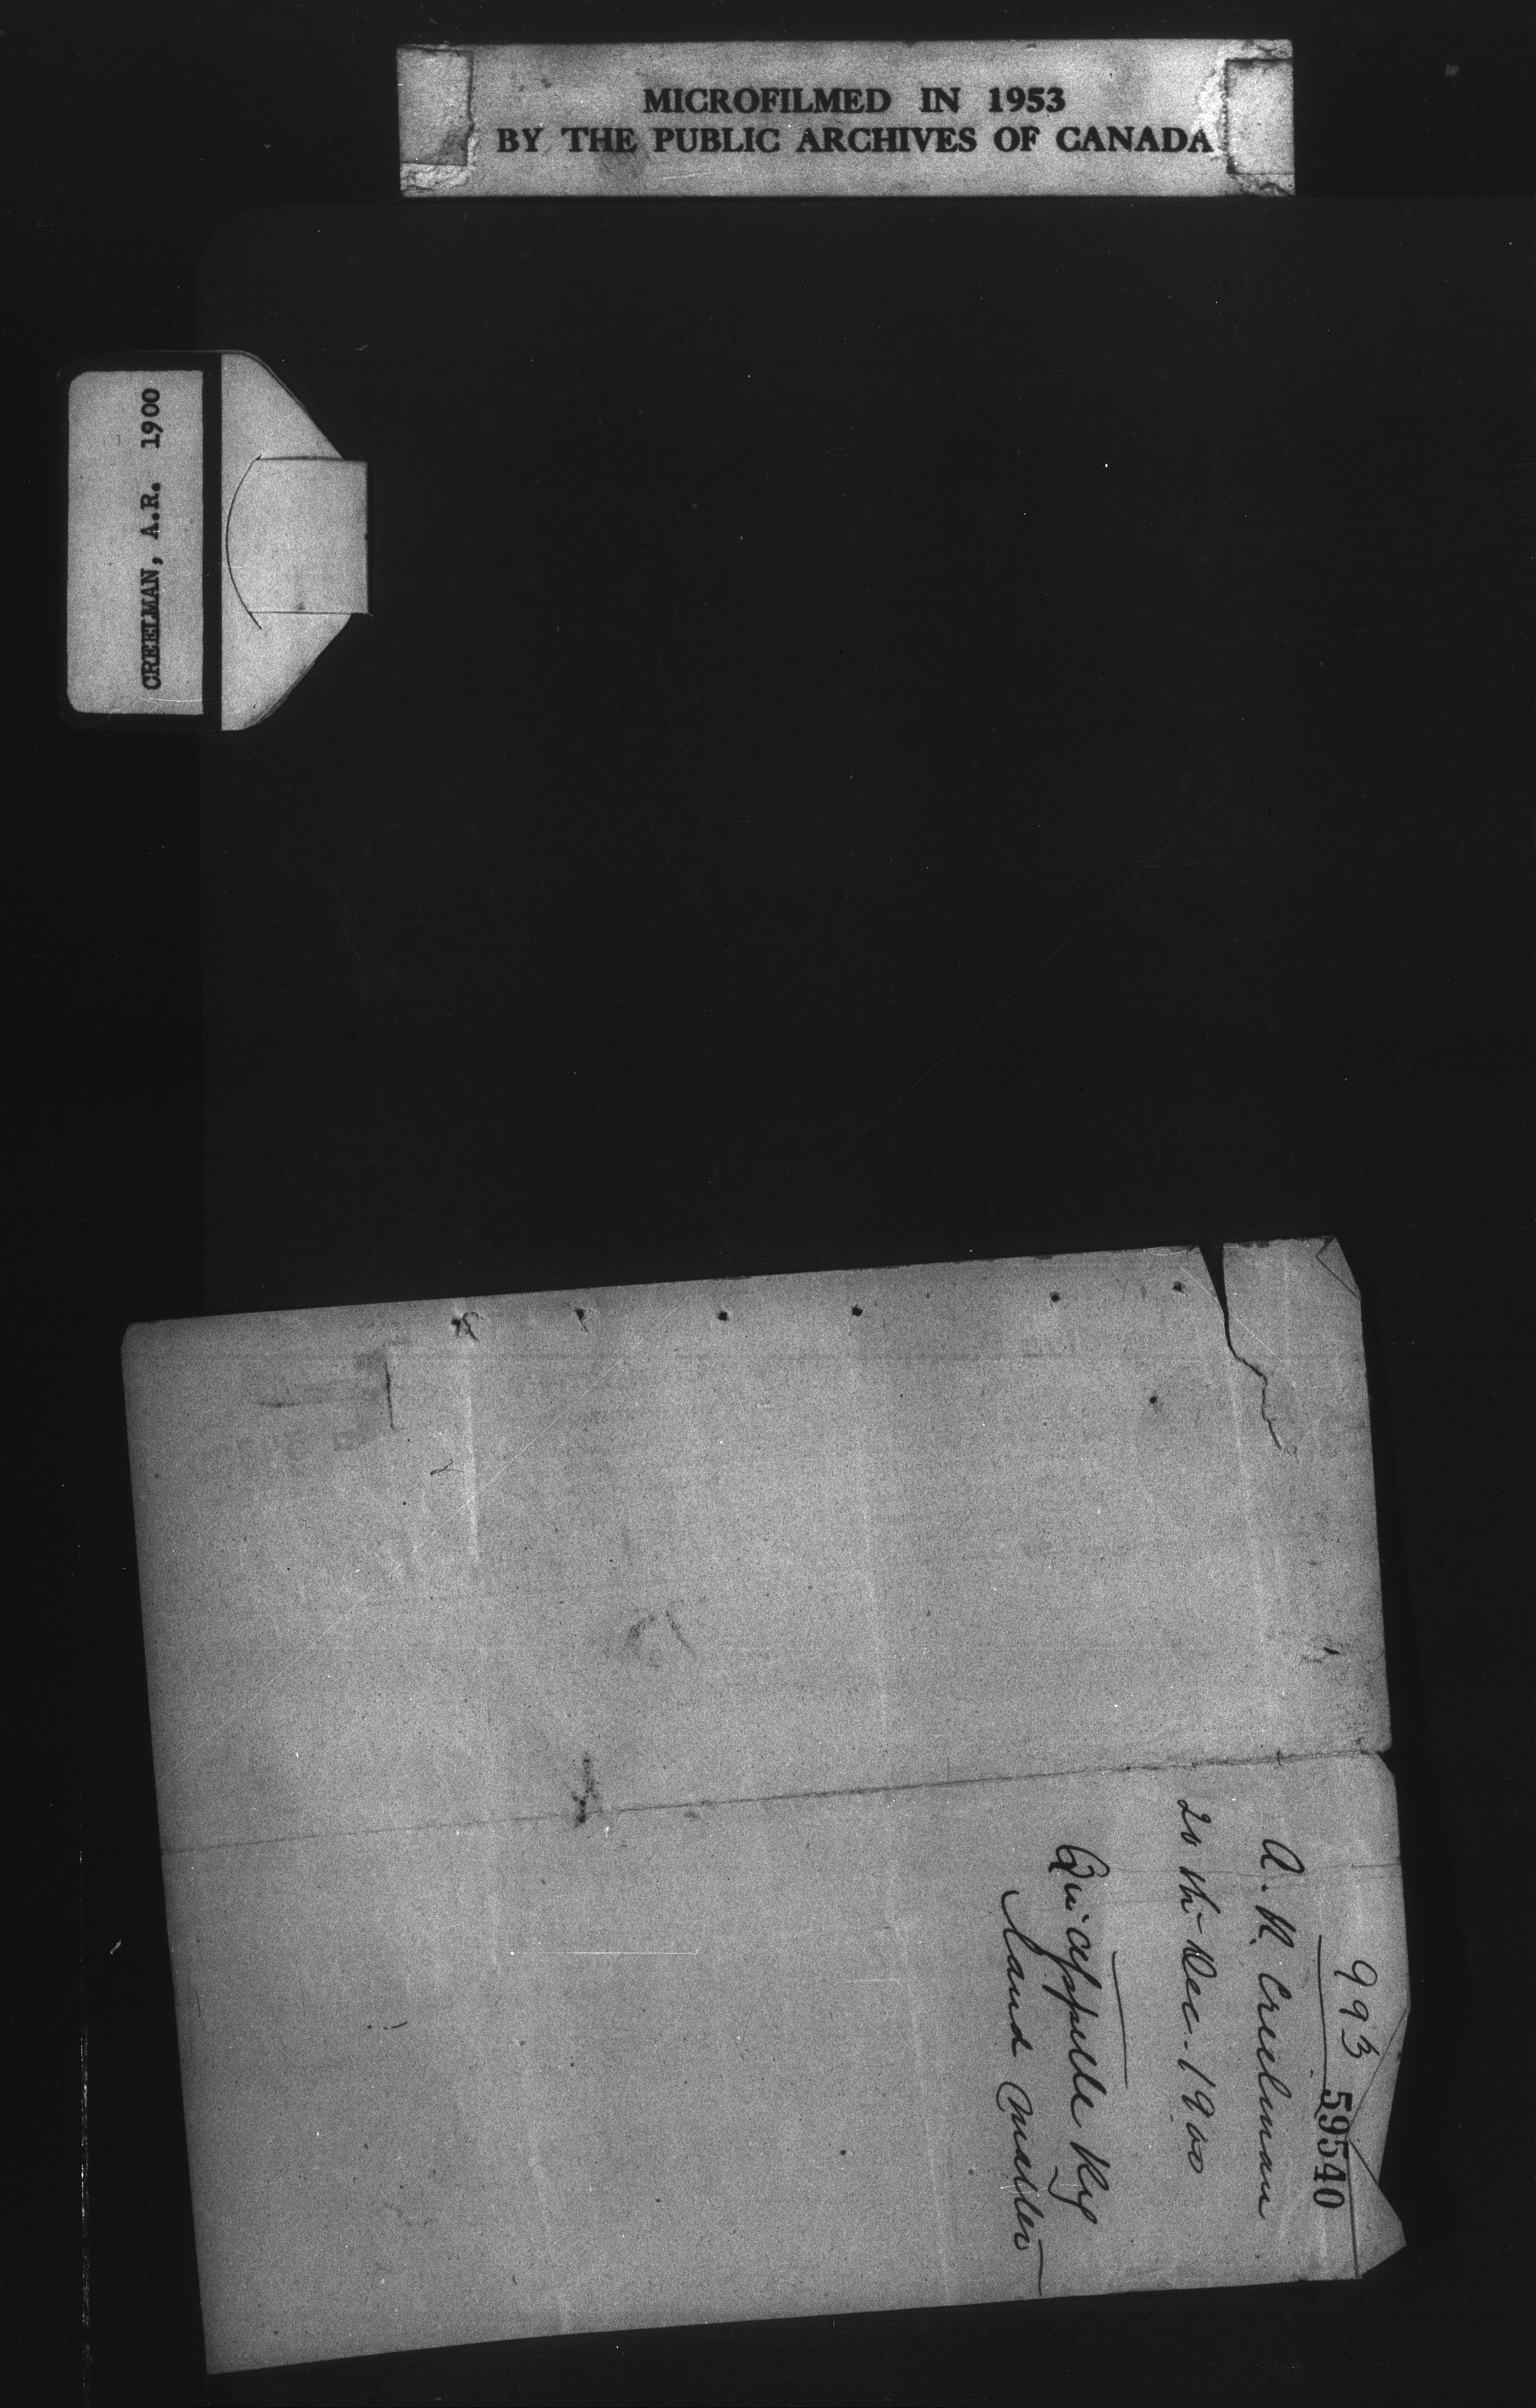 MICROFILMED IN 1953
BY THE PUBLIC ARCHIVES OF CANADA
CREELMAN, A.R. 1900
993
59540
A. R. Creelman
20th Dec. 1900
Qu'appelle Ry
Land Matter